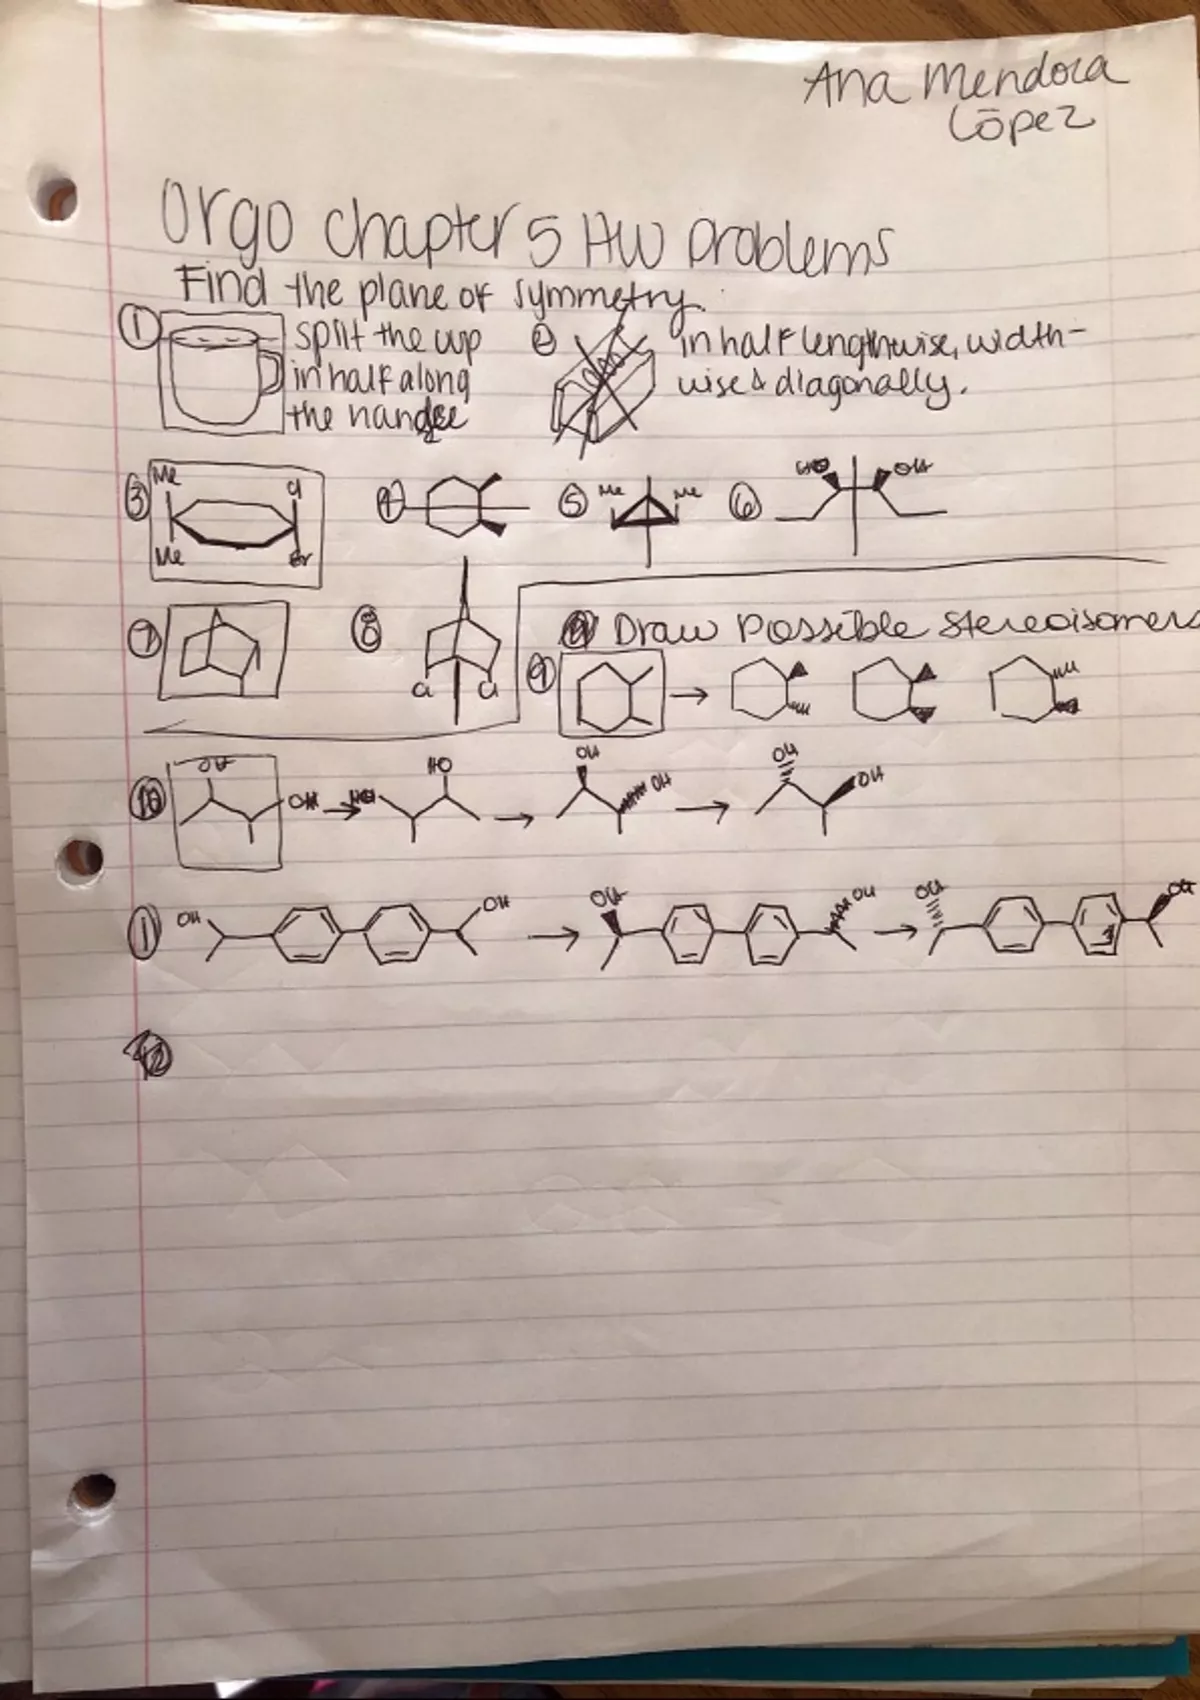 Ana Mendoza
López
Orgo chapter 5 HW Problems
Find the plane of symmetry.
① split the cup
in half along
the handle
② in half lengthwise, width-
wise & diagonally.
③ Me Cl
Me Br
④
⑤ Me Me
⑥ HO OH
⑦
⑧
Cl Cl
Draw Possible Stereoisomers
⑨
⑩ OH OH HO HO OH OH OH OH
⑪ OH OH OH OH OH OH
12